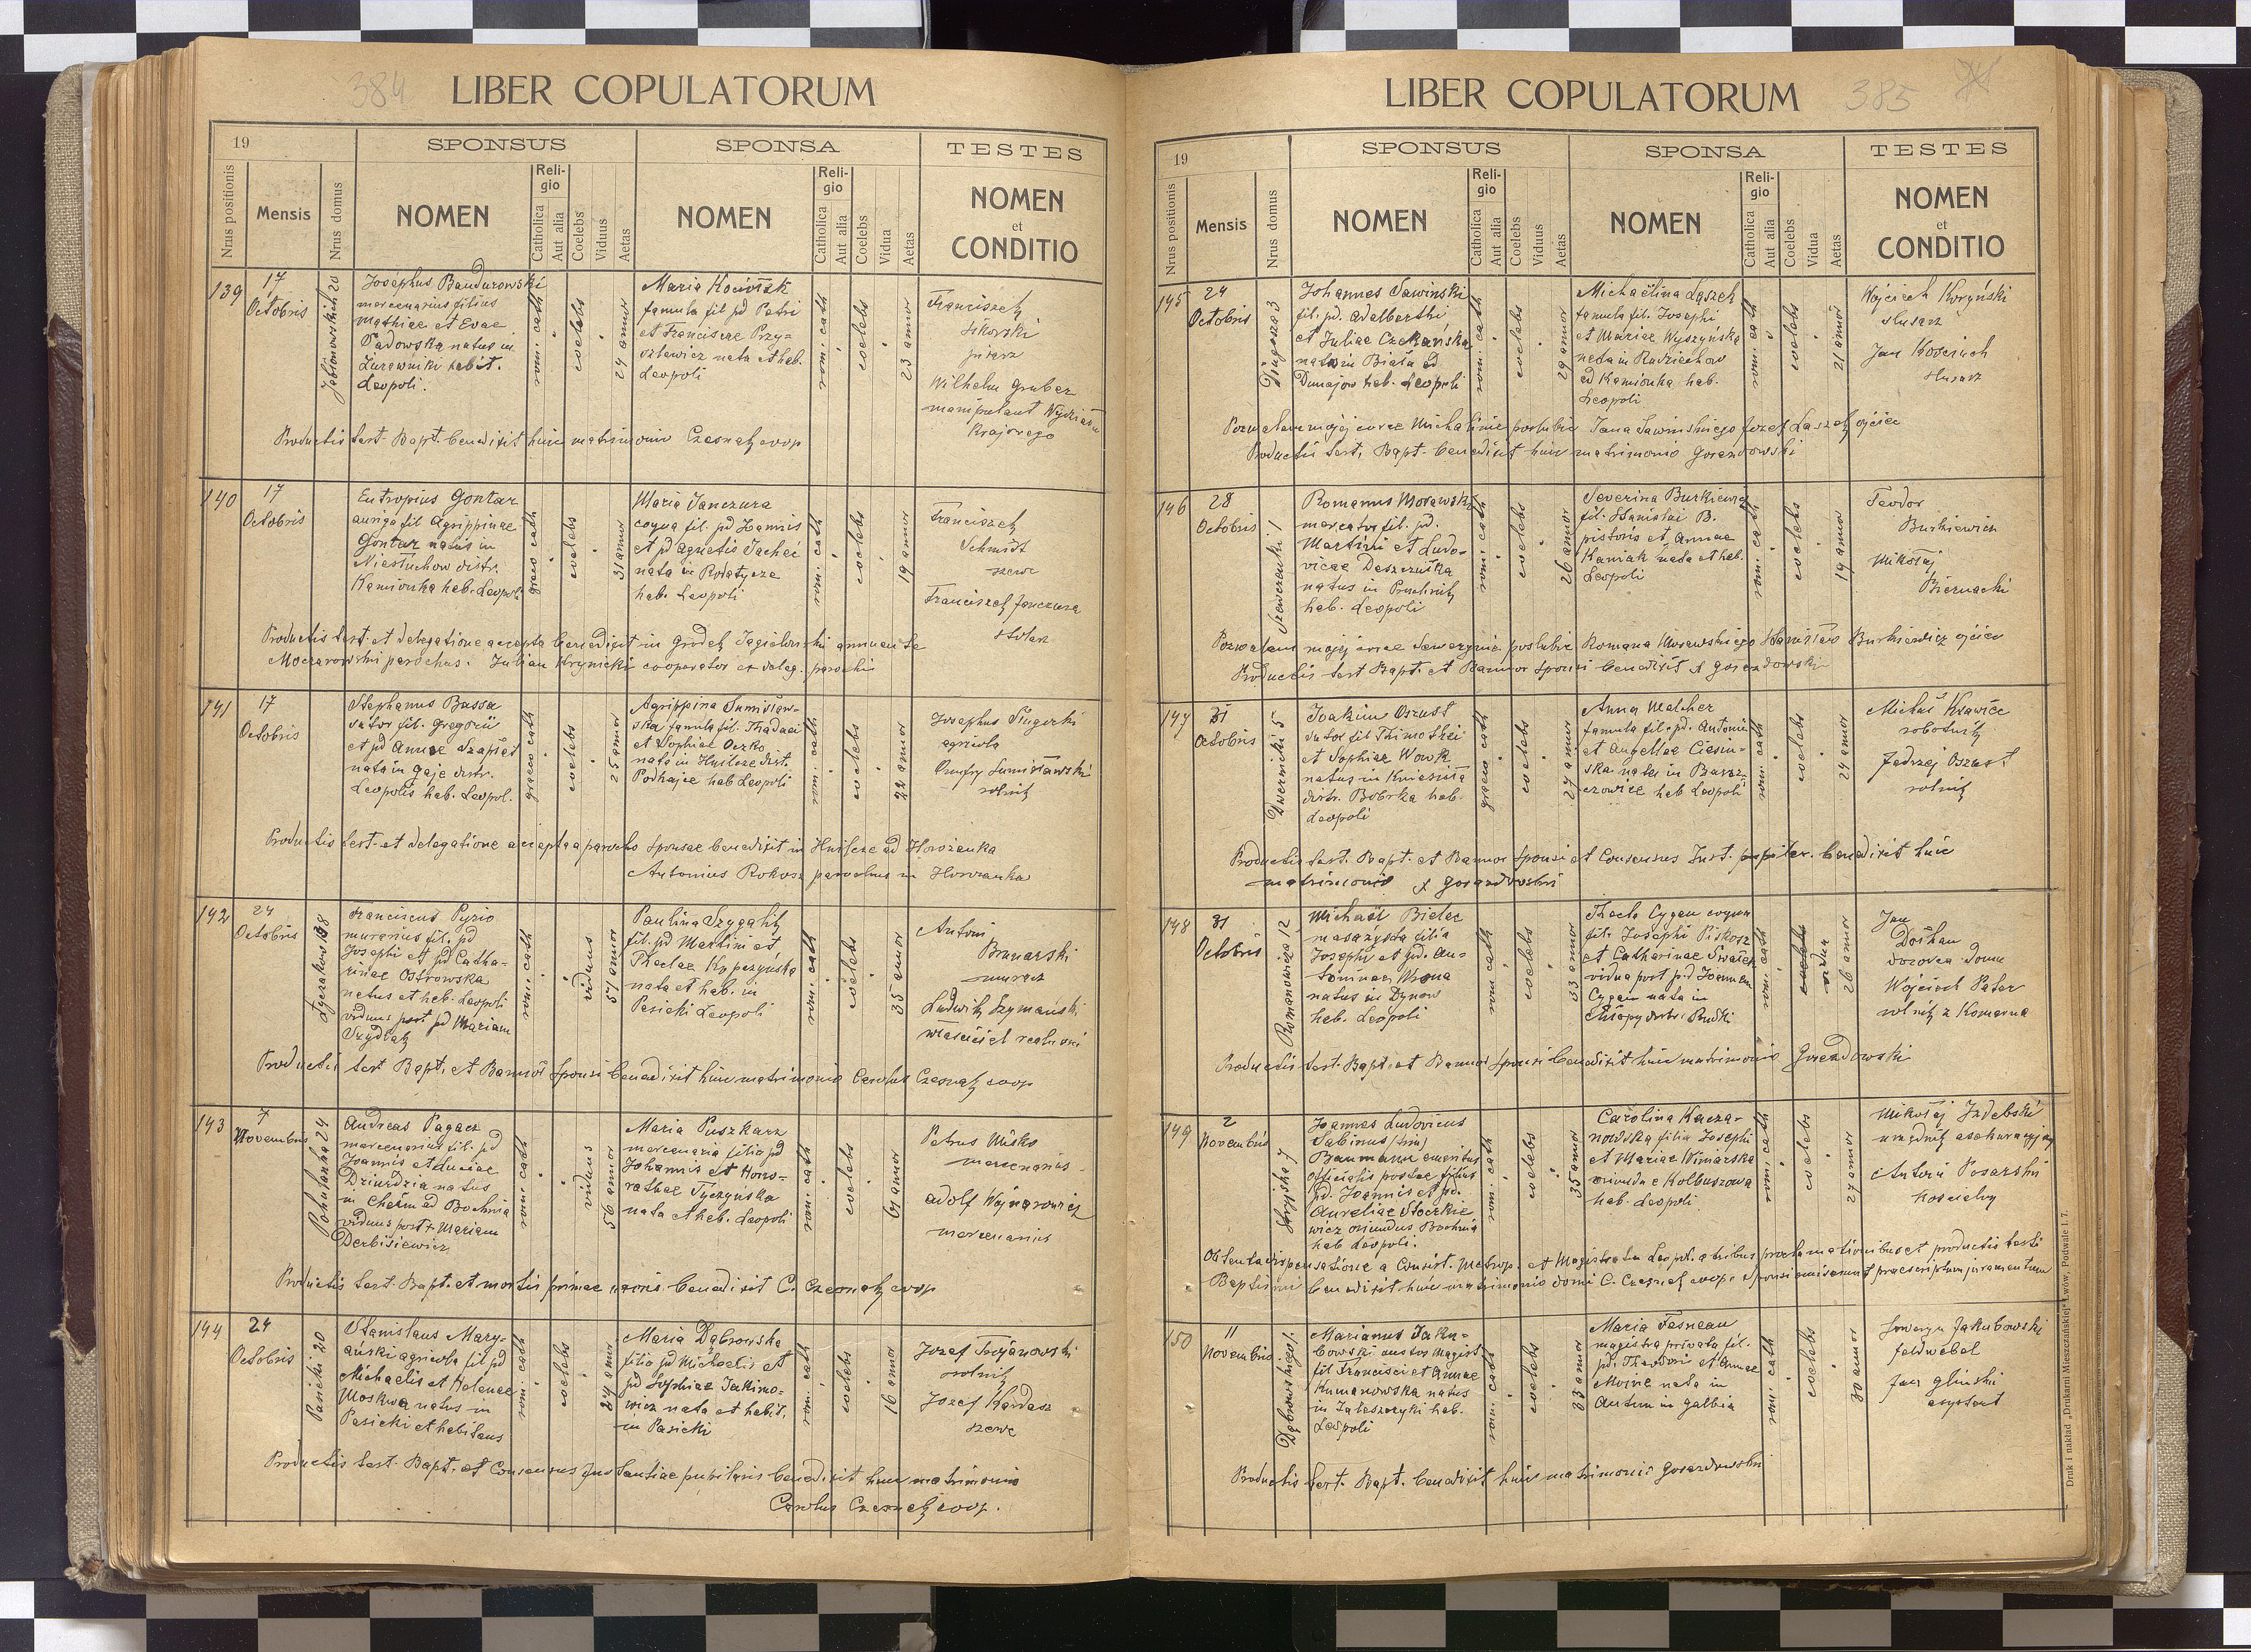 384
LIBER COPULATORUM
19
SPONSUS
SPONSA
TESTES
Nrus positionis
Mensis
Nrus domus
NOMEN
Religio
Catholica
Aut alia
Coelebs
Viduus
Aetas
NOMEN
Religio
Catholica
Aut alia
Coelebs
Vidua
Aetas
NOMEN
et
CONDITIO
139
17
Octobris
Jabłonowskich 20
Josephus Bandurowski
mercenarius filius
Mathiae et Evae
Padowska natus in
Żurawniki habit.
Leopoli.
rom. cath
coelebs
24 annor
Maria
famula fil pd Petri
et Franciscae Przy-
nata et hab.
Leopoli
rom. cath
coelebs
23 annor
Franciszek
Sikorski
pisarz
Wilhelm Gruber
manipulant Wydziału
Krajowego
Productis test. Bapt. benedixit huic matrimonio Czesnak coop
140
17
Octobris
Eutropius Gontar
auriga fil Agrippinae
Gontar natus in
Niestuchow distr.
Kamionka hab. Leopoli
graeco cath
coelebs
31 annor
Maria Janczura
coqua fil. pd Joannis
et pd Agnetis
nata in Rodatycze
hab. Leopoli
rom. cath
coelebs
19 annor
Franciszek
Schmidt
szewc
Franciszek Janczura
stolarz
Productis test. et delegatione accepta benedixit in Gródek Jagielloński annuente
parochus. Julian Krynicki cooperator ex deleg. parochi
141
17
Octobris
Stephanus Bassa
sutor fil. Gregorii
et pd Annae
natus in Gaje distr.
Leopolis hab. Leopol.
graeco cath
coelebs
25 annor
Agrippina
famula fil. Thadaei
et Sophiae Oczko
nata in distr.
Podhajce hab Leopoli
rom. cath
coelebs
22 annor
Josephus
agricola
Onufry
rolnik
Productis test. et delegatione accepta a parocho sponsae benedixit in ad Horożanka
Antonius Rokosz parochus in Horożanka
142
24
Octobris
Łyczakow 138
Franciscus Pyzio
murarius fil. pd
Josephi et pd Catha-
rinae Ostrowska
natus et hab. Leopoli
viduus post pd Mariam
Szydłak
rom. cath
viduus
54 annor
Paulina Szygalik
fil. pd Martini et
Theclae
nata et hab. in
Pasieki Leopoli
rom. cath
coelebs
35 annor
Antoni
murarz
Ludwik Szymański
właściciel realności
Productis test Bapt. et Bannor sponsi benedixit huic matrimonio Carolus Czesnak coop
143
7
Novembris
Pohulanka 24
Andreas Pagacz
mercenarius fil. pd
Joannis et Luciae
Dziurdzia natus
in Chełm ad Bochnia
viduus post + Mariam
Derbisiewicz
rom. cath
viduus
56 annor
Maria Puszkarz
mercenaria filia pd
Johannis et Hono-
rathae Tyczyńska
nata et hab. Leopoli
rom. cath
coelebs
61 annor
Petrus Misko
mercenarius
Adolf Wojnarowicz
mercenarius
Productis test. Bapt. et mortis primae uxoris benedixit C. Czesnak coop
144
24
Octobris
Pasieki 20
Stanislaus Mary-
ański agricola fil pd
Michaelis et Helenae
Moskwa natus in
Pasieki et habitans
rom. cath
coelebs
24 annor
Maria Dąbrowska
filia pd Michaelis et
pd Sophiae Jakimo-
wicz nata et habit.
in Pasieki
rom. cath
coelebs
16 annor
Jozef Trojanowski
rolnik
Jozef Kardasz
szewc
Productis test. Bapt. et Consensus Instantiae pupilaris benedixit huic matrimonio
Carolus Czesnak coop.
LIBER COPULATORUM
385
19
SPONSUS
SPONSA
TESTES
Nrus positionis
Mensis
Nrus domus
NOMEN
Religio
Catholica
Aut alia
Coelebs
Viduus
Aetas
NOMEN
Religio
Catholica
Aut alia
Coelebs
Vidua
Aetas
NOMEN
et
CONDITIO
145
24
Octobris
Długosza 3
Johannes Sawinski
fil. pd. Adalberthi
et Juliae Czekańska
natus in Biała ad
Dunajow hab. Leopoli
rom. cath
coelebs
29 annor
Michaëlina Łaszek
famula fil. Josephi
et Mariae Wyszyńska
nata in Radziechow
ad Kamionka hab.
Leopoli
rom. cath
coelebs
21 annor
Wojciech Koryński
slusarz
Jan Kosciuch
slusarz
Pozwalam mojej corce Michalinie poslubic Jana Sawinskiego Jozef Łaszek ojciec
Productis test. Bapt. benedixit huic matrimonio Gorazdowski
146
28
Octobris
Szewczenki 1
Romanus Morawski
mercator fil. pd.
Martini et Ludo-
vicae Daszczuska
natus in
hab. Leopoli
rom. cath
coelebs
26 annor
Severina Burkiewicz
fil. Stanislai B.
pistoris et Annae
Kaniak nata et hab.
Leopoli
rom. cath
coelebs
19 annor
Teodor
Burkiewicz
Mikołaj
Biernacki
Pozwalam mojej corce Sewerynie poslubic Romana Morawskiego Stanisław Burkiewicz ojciec
Productis test Bapt. et Bannor sponsi benedixit X Gorazdowski
147
31
Octobris
Dwernicki 5
Joakim Oszust
sutor fil Thimothei
et Sophiae Wowk
natus in Kniesioła
distr. Bobrka hab.
Leopoli
graeco cath
coelebs
27 annor
Anna Melcher
famula fil. pd. Antonii
et Angellae Ciesin-
ska nata in Barsz-
czowice hab Leopoli
rom. cath
coelebs
24 annor
Michał Krawiec
robotnik
Jędrzej Oszust
rolnik
Productis test. Bapt. et Bannor sponsi et Consensus Inst. pupilar. benedixit huic
matrimonio X Gorazdowski
148
31
Octobris
Romanowicza 12
Michaël Bielec
masażysta filia
Josephi et pd. An-
toninae Wrona
natus in Dynow
hab. Leopoli
rom. cath
coelebs
33 annor
Thecla Cygan coqua
fil. Josephi Piskorz
et Catharinae Swatek
vidua post pd Joannem
Cygan nata in
Chłopy distr. Rudki
rom. cath
coelebs
vidua
26 annor
Jan
Dozban
dozorca domu
Wojciech Pater
rolnik z Komarna
Productis test. Bapt. et Bannor sponsi benedixit huic matrimonio Gorazdowski
149
2
Novembris
Stryjska 7
Joannes Ludovicus
Sabinus (trin)
Baumann emeritus
officialis postae filius
pd. Joannis et pd.
Aureliae Stoczkie
wicz oriundus Bochnia
hab Leopoli.
rom. cath
coelebs
35 annor
Carolina Kacza-
nowska filia Josephi
et Mariae Winiarska
oriunda e Kolbuszowa
hab. Leopoli
rom. cath
coelebs
27 annor
Mikołaj Izdebski
urzędnik asekuracyjny
Antoni Posarski
koscielny
Obtenta dispensatione a Consist. Metrop. et Magistratu Leopol. a tribus proclamationibus et productis testi
Baptismi benedixit huic matrimonio domi C. Czesnak coop. sponsi emiserunt praescriptum juramentum
150
11
Novembris
Dąbrowskiego 1.
Marianus Jaku-
bowski custos Magist
fil Francisci et Annae
Kumanowska natus
in Zaleszczyki hab.
Leopoli
rom. cath
coelebs
33 annor
Maria Fasnean
magistra privata fil.
pd. Theodori et Annae
Moine nata in
Autun in Gallia
rom. cath
coelebs
30 annor
Seweryn Jakubowski
feldwebel
Jan Glinski
asystent
Productis test. Bapt. benedixit huic matrimonio Gorazdowski
Druk i nakład „Drukarni Mieszczańskiej" Lwów, Podwale l. 7.